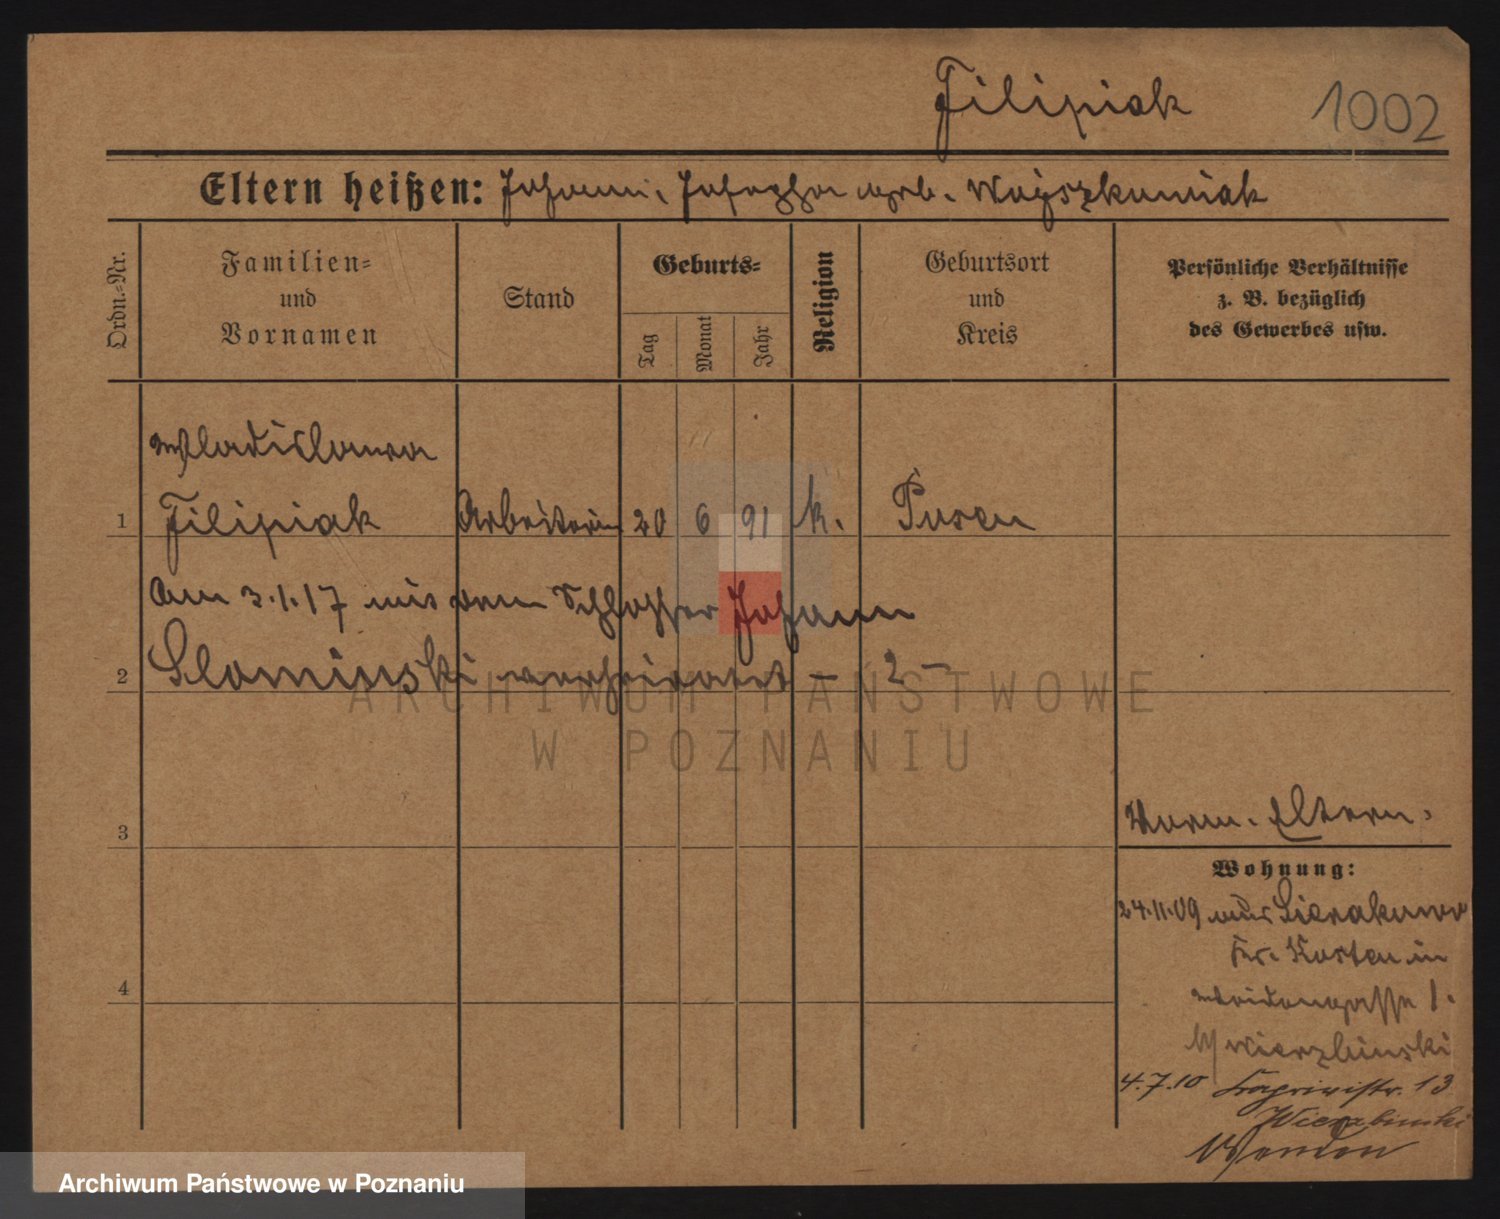 Filipiak
1002
Eltern heißen: Johann, Josepha geb. Wojszkuniak
Ordn.-Nr.
Familien- und Vornamen
Stand
Geburts-
Tag
Monat
Jahr
Religion
Geburtsort und Kreis
Persönliche Verhältnisse
z. B. bezüglich
des Gewerbes usw.
Wladislawa
1 Filipiak Arbeiterin 20 6 91 k. Posen
Am 3.1.17 mit dem Schlosser Johann
2 Slominski verheiratet – 2 –
ARCHIWUM PAŃSTWOWE
W POZNANIU
3
Vorm. Eltern.
Wohnung:
24.11.09 aus Sierakowo
Kr. Kosten in
4
Weidengasse 1.
b/ Wierzbinski
4.7.10 Caprivistr. 13
Wierzbinski
Archiwum Państwowe w Poznaniu